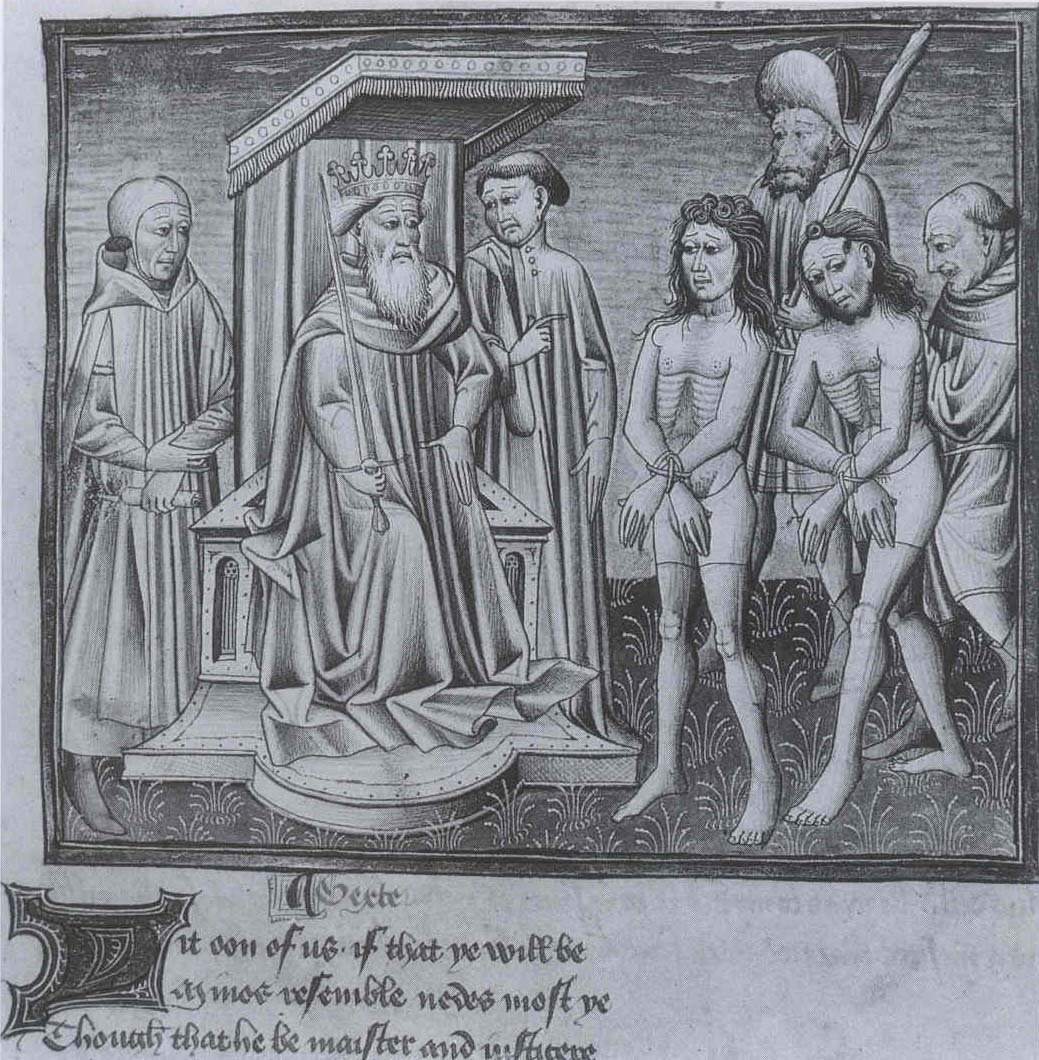 ¶ Texte
Yit oon of us · if that ye will be
Minos resemble nedes most ye
Though that he be maister and iusticere